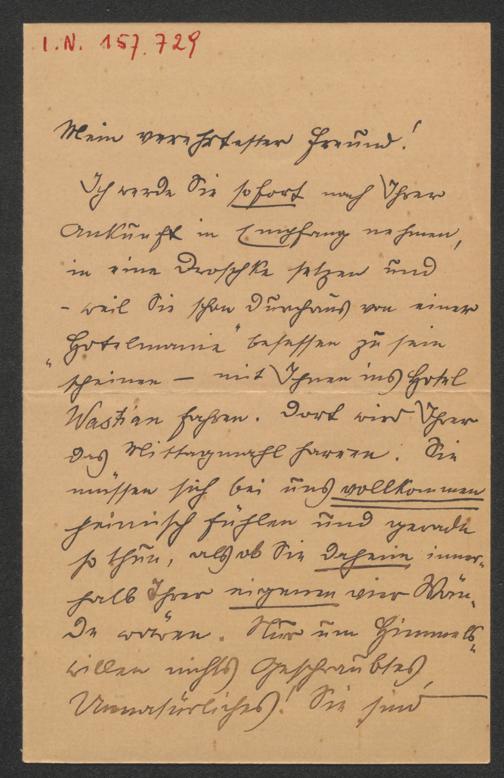 I.N. 157.729
Mein verehrtester Freund!
Ich werde Sie sofort nach Ihrer
Ankunft in Empfang nehmen,
in eine Droschke setzen und
– weil Sie schon durchaus von einer
„Hotelmanie" besessen zu sein
scheinen – mit Ihnen ins Hotel
Wastian fahren. Dort wird Ihrer
das Mittagmahl harren. Sie
müssen sich bei uns vollkommen
heimisch fühlen und gerade
so thun, als ob Sie daheim inner-
halb Ihrer eigenen vier Wän-
de wären. Nur um Himmels-
willen nichts Geschraubtes,
Unnatürliches! Sie sind